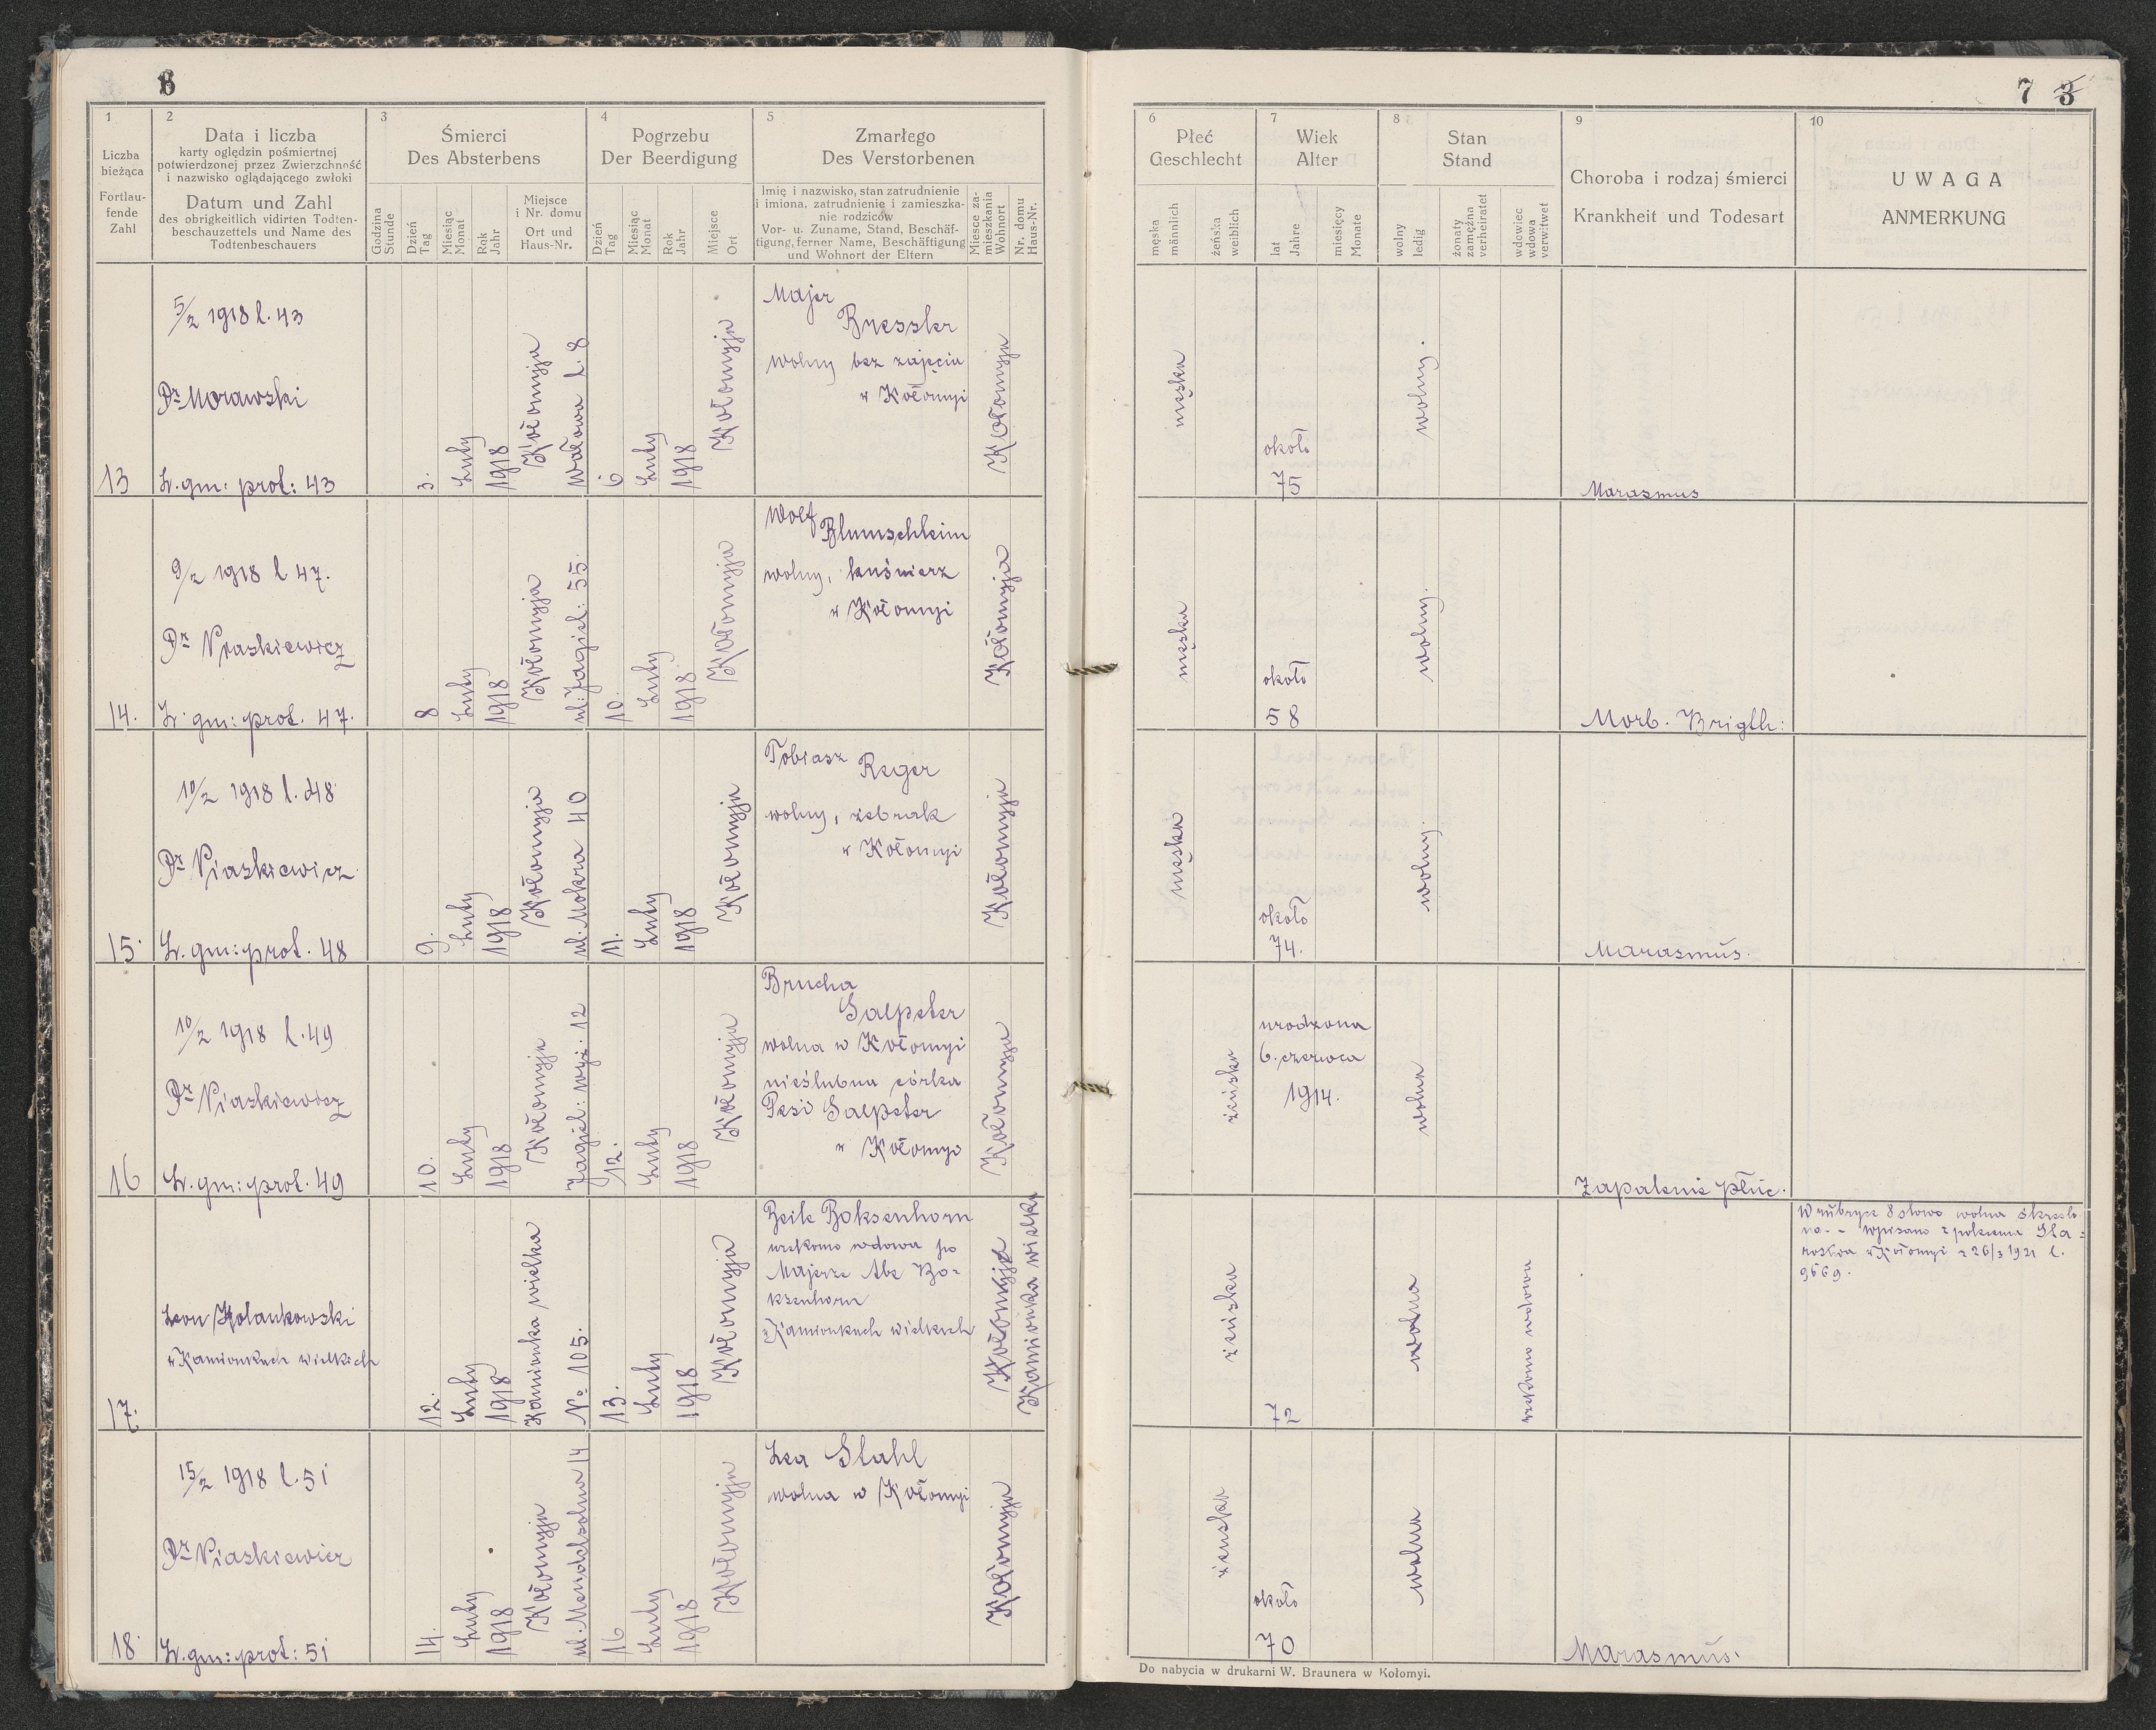 6
1
Liczba
bieżąca
Fortlau-
fende
Zahl
2
Data i liczba
karty oględzin pośmiertnej
potwierdzonej przez Zwierzchność
i nazwisko oglądającego zwłoki
Datum und Zahl
des obrigkeitlich vidirten Todten-
beschauzettels und Name des
Todtenbeschauers
3
Śmierci
Des Absterbens
Godzina
Stunde
Dzień
Tag
Miesiąc
Monat
Rok
Jahr
Miejsce
i Nr. domu
Ort und
Haus-Nr.
4
Pogrzebu
Der Beerdigung
Dzień
Tag
Miesiąc
Monat
Rok
Jahr
Miejsce
Ort
5
Zmarłego
Des Verstorbenen
Imię i nazwisko, stan zatrudnienie
i imiona, zatrudnienie i zamieszka-
nie rodziców
Vor- u. Zuname, Stand, Beschäf-
tigung, ferner Name, Beschäftigung
und Wohnort der Eltern
Miesce za-
mieszkania
Wohnort
Nr. domu
Haus-Nr.
13
5/2 1918 l. 43
Dr Morawski
L. gm: prot: 43
3.
Luty
1918
Kołomyja
Wałowa l. 8
6
Luty
1918
Kołomyja
Majer
Bressler
wolny bez zajęcia
w Kołomyi
Kołomyja
14.
9/2 1918 l 47.
Dr Piaskiewicz
L. gm: prot. 47.
8
Luty
1918
Kołomyja
ul: Jagiel: 55.
10.
Luty
1918
Kołomyja
Wolf
Blumschleim
wolny, kuśnierz
w Kołomyi
Kołomyja
15
10/2 1918 l. 48
Dr Piaskiewicz
L. gm: prot. 48
9.
Luty
1918
Kołomyja
ul. Mokra 40
11.
Luty
1918
Kołomyja
Tobiasz Reger
wolny, żebrak
w Kołomyi
Kołomyja
16
10/2 1918 l. 49
Dr Piaskiewicz
L. gm: prot. 49
10.
Luty
1918
Kołomyja
Jagiel: wyż: 12
12.
Luty
1918
Kołomyja
Brucha
Salpeter
wolna w Kołomyi
nieślubna córka
Pesi Salpeter
w Kołomyi
Kołomyja
17.
Leon Kolankowski
w Kamionkach wielkich
12.
Luty
1918
Kamionka wielka
No 105.
13.
Luty
1918
Kołomyja
Beile Boksenhorn
rzekomo wdowa po
Majerze Abe Bo-
ksenhorn
z Kamionkach wielkich
Kołomyja
Kamionka wielka
18
15/2 1918 l. 51
Dr Piaskiewicz
L. gm: prot: 51
14.
Luty
1918
Kołomyja
ul. Mendelsohna 14
16
Luty
1918
Kołomyja
Lea Stahl
wolna w Kołomyi
Kołomyja
7 3
6
Płeć
Geschlecht
męska
männlich
żeńska
weiblich
7
Wiek
Alter
lat
Jahre
miesięcy
Monate
8
Stan
Stand
wolny
ledig
żonaty
zamężna
verheiratet
wdowiec
wdowa
verwitwet
9
Choroba i rodzaj śmierci
Krankheit und Todesart
10
UWAGA
ANMERKUNG
męska
około
75
wolny.
Marasmus
męska
około
58
wolny.
Morb. Brigth:
męska
około
74.
wolny.
Marasmus.
żeńska
urodzona
6. czerwca
1914.
wolna
Zapalenie płuc.
żeńska
72
wolna
rzekomo wdowa
W rubryce 8 słowo wolna skreślo
no - - wpisano z polecenia Sta=
rostwa w Kołomyi z 26/3 1921 l.
9569.
żeńska
około
70
wolna
Marasmus.
Do nabycia w drukarni W. Braunera w Kołomyi.